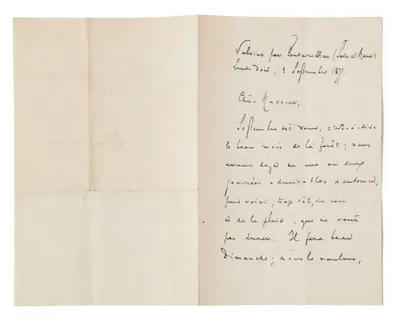 Valvins par Fontainebleau (Seine et Marne)
Vendredi, 3 Septembre 1897.
Chère Madame,
Septembre est venu, c'est-à-dire
le beau mois de la forêt; nous
avons déjà eu une ou deux
journées admirables d'automne,
puis voici, trop tôt, du noir
et de la pluie, que ne vont
pas durer. Il fera beau
Dimanche; nous le voulons,